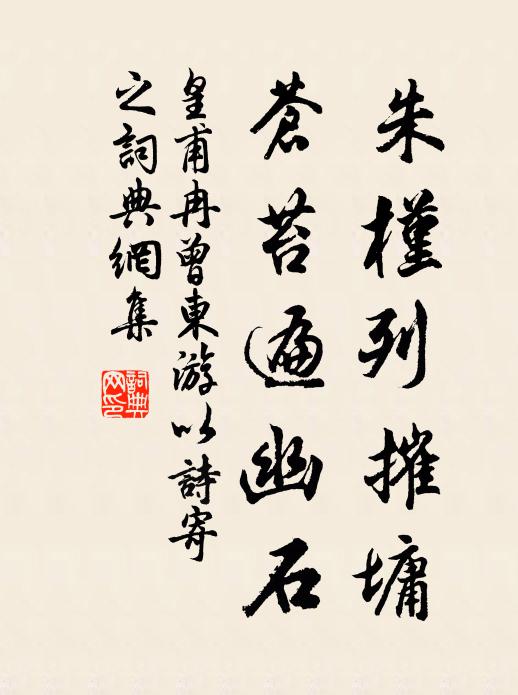 朱槿列摧墉
蒼苔遍幽石
皇甫冉曾東游以詩寄
之詞典網集
詞典
网印